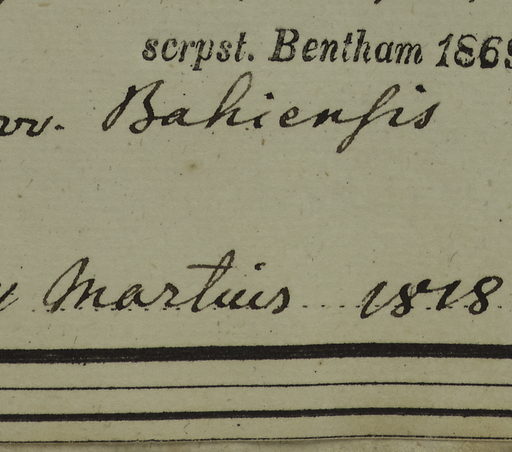 scrpst. Bentham 1869
ov. Bahiensis
Martius 1818